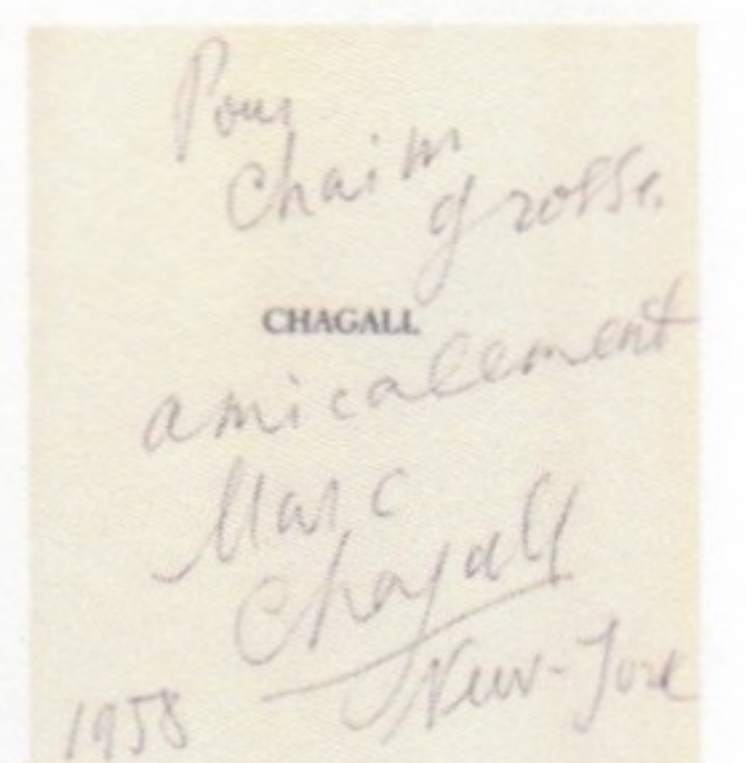 Pour
Chaim
grosse.
CHAGALL
amicalement
Marc
Chagall
New-York
1958